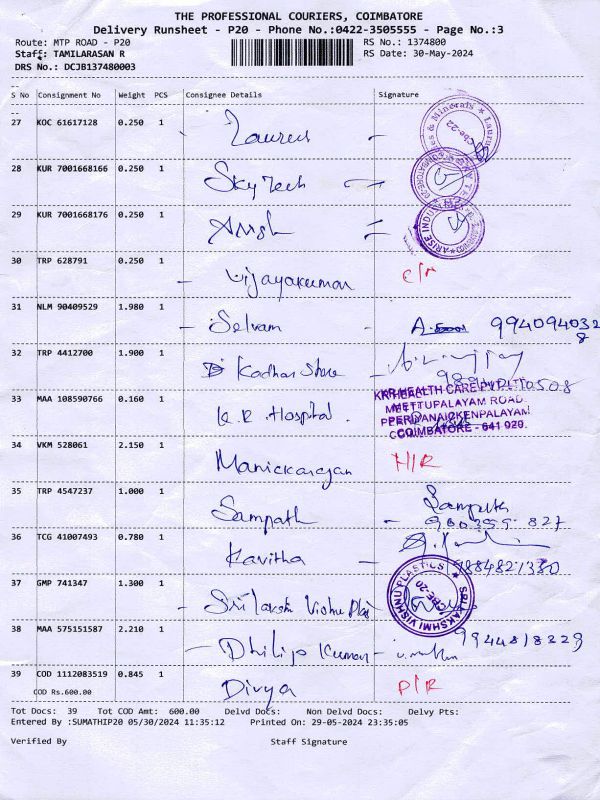 THE PROFESSIONAL COURIERS, COIMBATORE
Delivery Runsheet - P20 - Phone No.:0422-3505555 - Page No.:3
Route: MTP ROAD - P20 RS No.: 1374800
Staff: TAMILARASAN R RS Date: 30-May-2024
DRS No.: DCJB137480003
S No Consignment No Weight PCS Consignee Details Signature
27 KOC 61617128 0.250 1 Laurus
28 KUR 7001668166 0.250 1 Sky Tech
29 KUR 7001668176 0.250 1 ARISE INDU
30 TRP 628791 0.250 1 Vijayakumar
31 NLM 90409529 1.980 1 Selvam 9940940328
32 TRP 4412700 1.900 1 Kadhar Share
33 MAA 108590766 0.160 1 K.R. Hospital KKR HEALTH CARE PVT LTD
METTUPALAYAM ROAD
PERIYANAICKENPALAYAM
COIMBATORE - 641 020.
34 VKM 528061 2.150 1 Manickarajan H/R
35 TRP 4547237 1.000 1 Sampath Sampath
36 TCG 41007493 0.780 1 Kavitha
37 GMP 741347 1.300 1 Sri Lakshmi Vishnu Plas SRI LAKSHMI VISHNU PLASTICS CBE-20
38 MAA 575151587 2.210 1 Dhilip Kumar 9944818229
39 COD 1112083519 0.845 1 Divya P/R
COD Rs.600.00
Tot Docs: 39 Tot COD Amt: 600.00 Delvd Docs: Non Delvd Docs: Delvy Pts:
Entered By :SUMATHIP20 05/30/2024 11:35:12 Printed On: 29-05-2024 23:35:05
Verified By Staff Signature